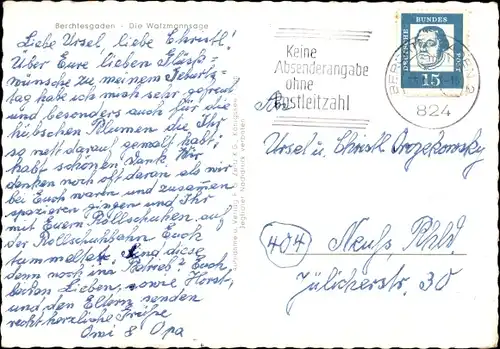 Berchtesgaden - Die Watzmannsage
Liebe Ursel, liebe Christl!
Über Eure lieben Glück=
wünsche zu meinem Geburts=
tag habe ich mich sehr gefreut
und besonders auch für die
hübschen Blumen die Ihr
so nett darauf gemalt habt;
habt schönen Dank. Wir
denken noch oft daran als wir
bei Euch waren und zusammen
spazieren gingen und Ihr
mit Euern Rollschuhen auf
der Rollschuhbahn Euch
tummeltet. Sind diese
denn noch in Betrieb? Euch
beiden Lieben, sowie Horst,
und den Eltern senden
recht herzliche Grüße
Omi & Opa
Jeglicher Nachdruck verboten
Keine
Absenderangabe
ohne
Postleitzahl
DEUTSCHE BUNDESPOST
15
824
An
Ursel u. Christl
404
Neuß, Rhld.
Jülicherstr. 30